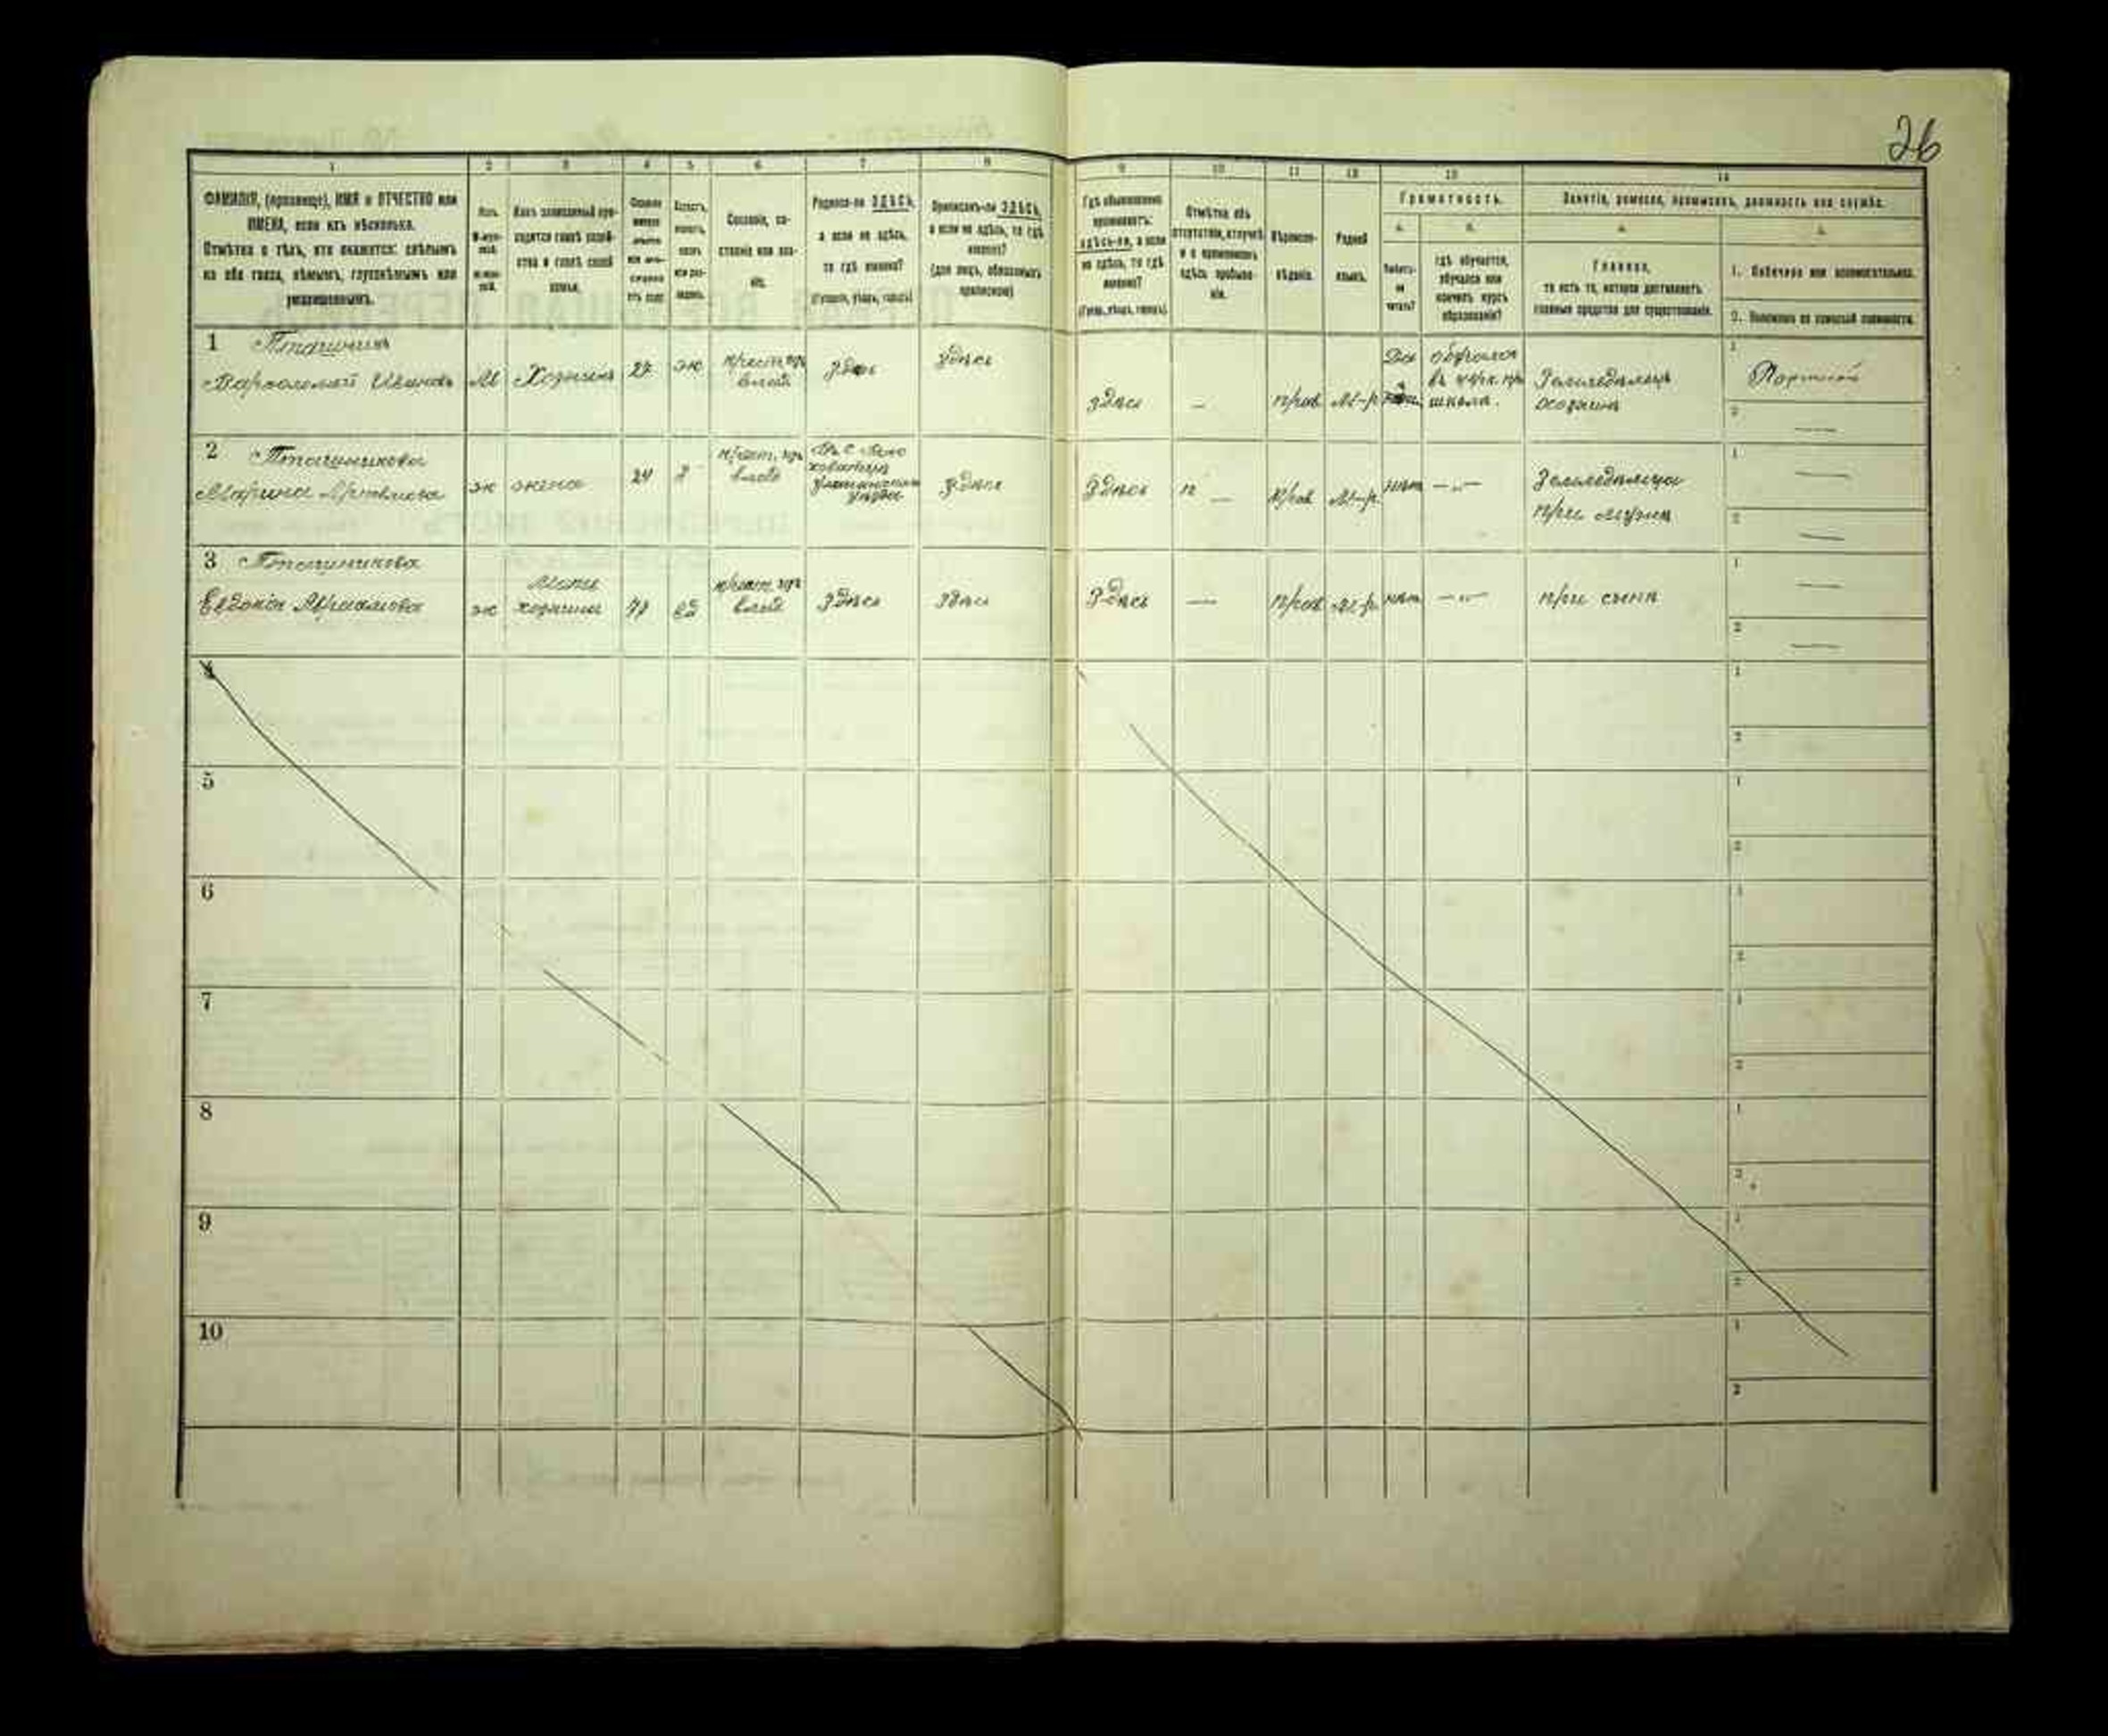 26
1 2 3 4 5 6 7 8 9 10 11 12 13 14
ФАМИЛІЯ, (прозвище), ИМЯ и ОТЧЕСТВО или
ИМЕНА, если ихъ нѣсколько.
Отмѣтка о тѣхъ, кто окажется: слѣпымъ
на оба глаза, нѣмымъ, глухонѣмымъ или
умалишеннымъ.
Полъ.
М-муж-
ской.
Ж-жен-
ской.
Какъ записанный при-
ходится главѣ хозяй-
ства и главѣ своей
семьи.
Сколько
минуло
лѣтъ
Холостъ,
женатъ,
вдовъ
или раз-
веденъ.
Сословіе, со-
стояніе или зва-
ніе.
Родился-ли ЗДѢСЬ,
а если не здѣсь,
то гдѣ именно?
(Губернія, уѣздъ, городъ)
Приписанъ-ли ЗДѢСЬ,
а если не здѣсь, то гдѣ
именно?
(для лицъ, обязанныхъ
припискою)
Гдѣ обыкновенно
проживаетъ:
здѣсь-ли, а если
не здѣсь, то гдѣ
именно?
(Губер., уѣздъ, городъ).
Отмѣтка объ
отсутствіи, отлучкѣ
и о временномъ
здѣсь пребыва-
ніи.
Вѣроиспо-
вѣданіе.
Родной
языкъ.
Грамотность.
а.
б.
Умѣетъ-
ли
читать?
гдѣ обучается,
обучался или
кончилъ курсъ
образованія?
Занятіе, ремесло, промыселъ, должность или служба.
а.
б.
Главное,
то есть то, которое доставляетъ
главныя средства для существованія.
1. Побочное или вспомогательное.
2. Положеніе по воинской повинности.
1 Пташникъ
Варфоломей Ивановъ М Хозяинъ 27 ж крест. изъ владѣ здѣсь здѣсь
здѣсь — прав. М-р. Да обучался въ церк. пр. школѣ. Земледѣлецъ хозяинъ 1 Портной 2 —
2 Пташникова
Марина ж жена 24 з крест. изъ уѣзда здѣсь
здѣсь — прав. М-р. нѣтъ —„— Земледѣлица при мужѣ 1 — 2 —
3 Пташникова
Евдокія Авраамова ж мать хозяина вд крест. изъ владѣ здѣсь здѣсь
здѣсь — прав. М-р. нѣтъ —„— при сынѣ 1 — 2 —
4 1 2
5 1 2
6 1 2
7 1 2
8 1 2
9 1 2
10 1 2